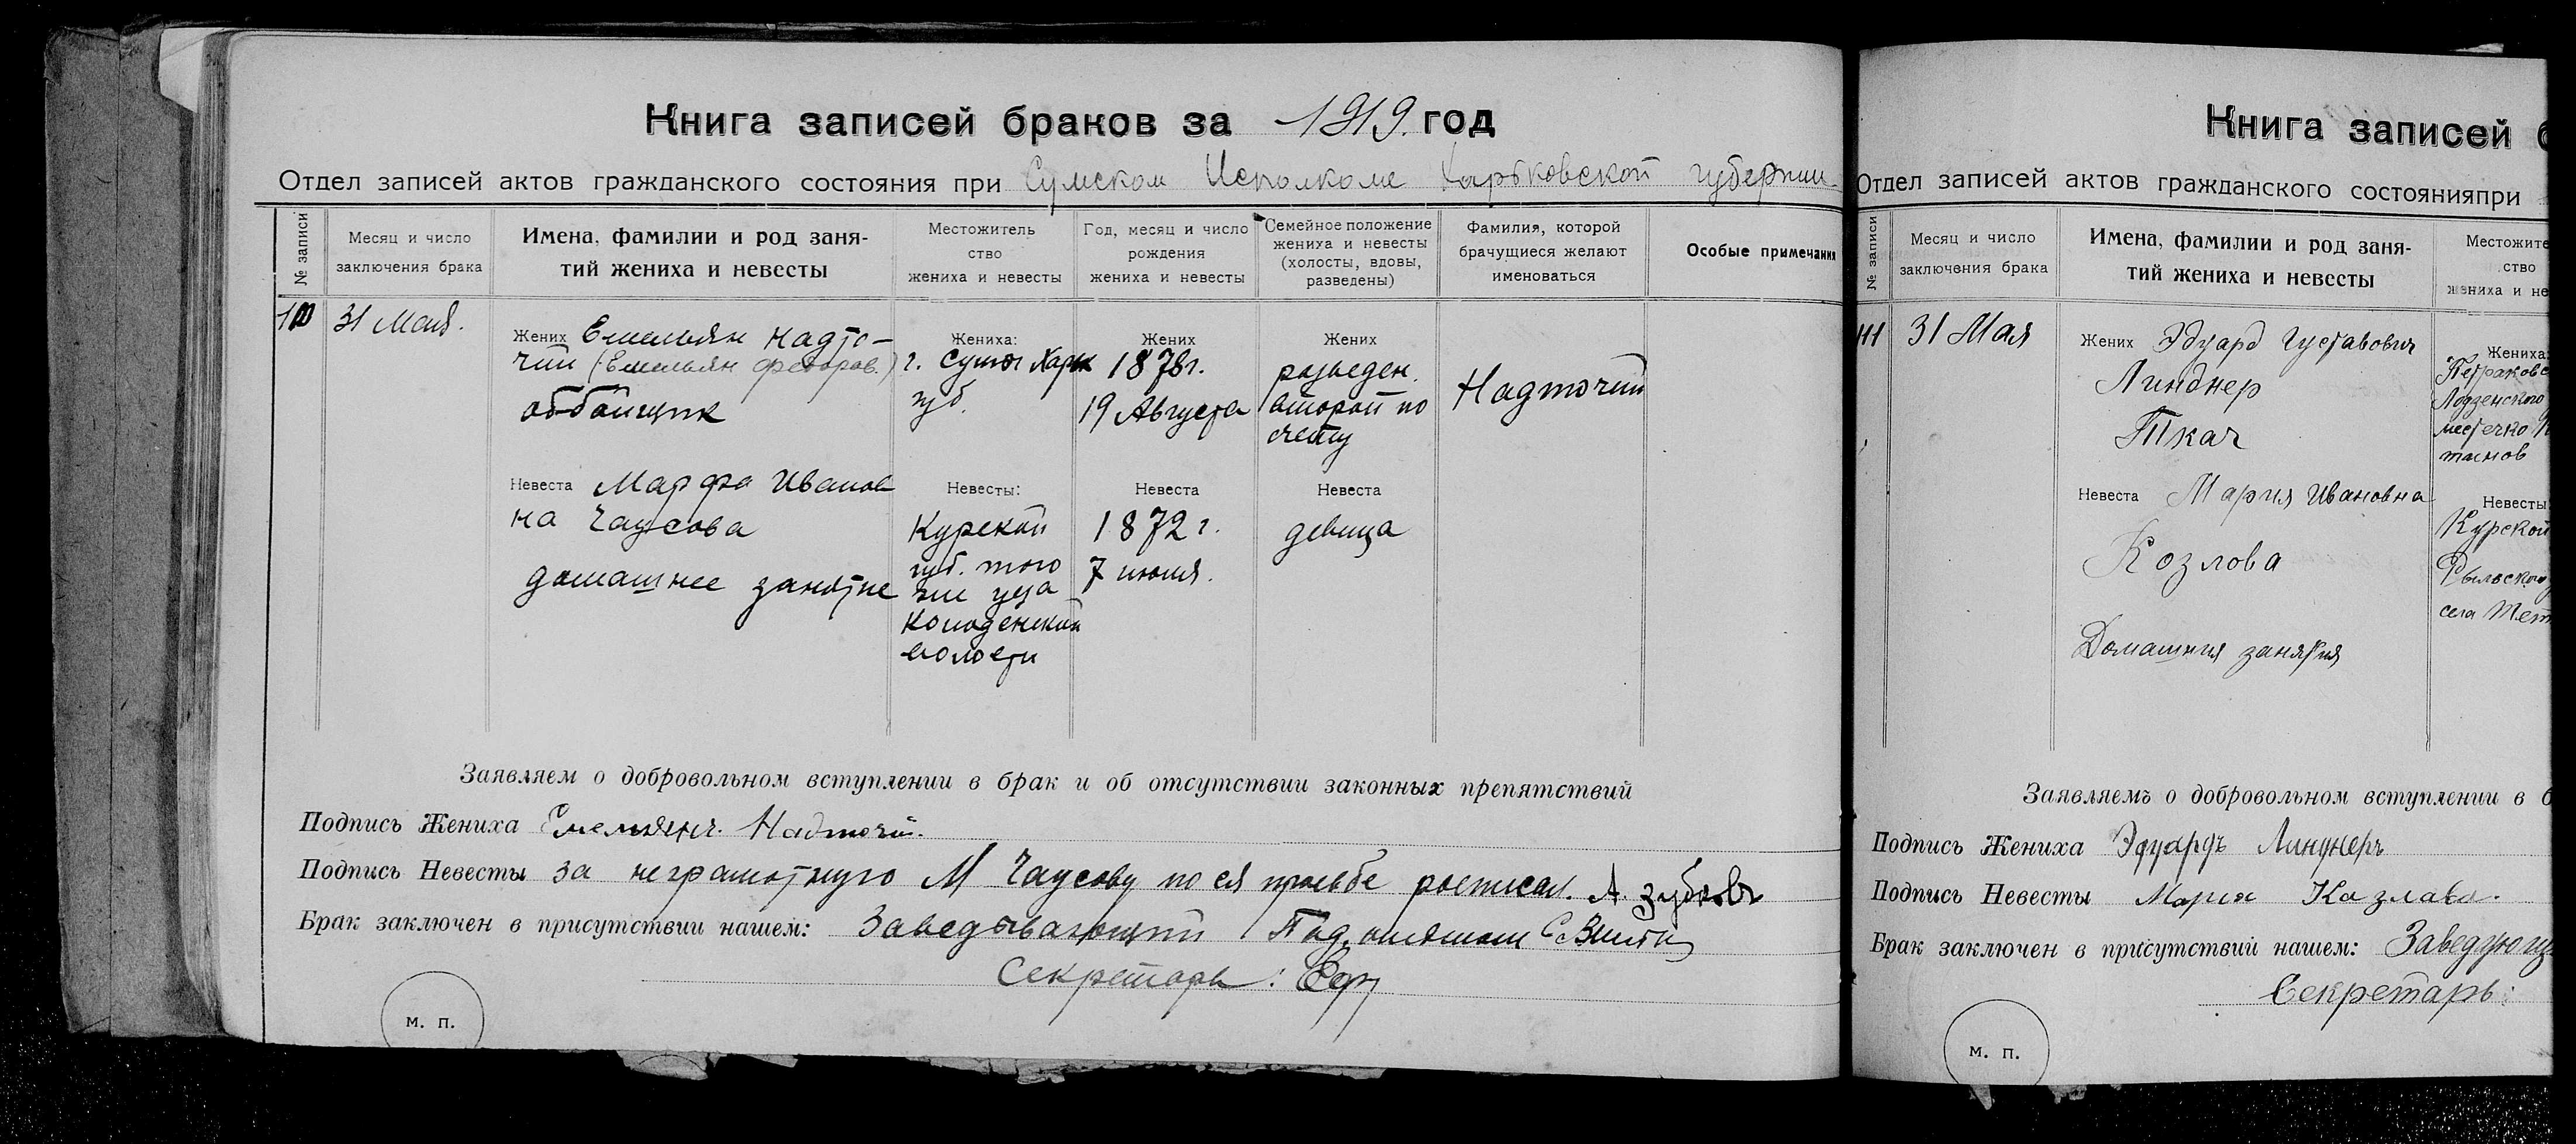 Книга записей браков за 1919. год
Отдел записей актов гражданского состояния при Сумском Исполкоме Харьковской губернии
№ записи
Месяц и число
заключения брака
Имена, фамилии и род заня-
тий жениха и невесты
Местожитель
ство
жениха и невесты
Год, месяц и число
рождения
жениха и невесты
Семейное положение
жениха и невесты
(холосты, вдовы,
разведены)
Фамилия, которой
брачущиеся желают
именоваться
Особые примечания
110
31 Мая.
Жених Емельян Надто-
чий (Емельян Федоров.)
оббойщик
Невеста Марфа Иванов
на Чаусова
домашнее занятие
Жениха:
г. Сумы Харьк
губ.
Невесты:
Курской
губ. того
же уезда
волости
Жених
1878г.
19 Августа
Невеста
1872 г.
7 июня.
Жених
разведен.
второй по
счету
Невеста
девица
Надточий
Заявляем о добровольном вступлении в брак и об отсутствии законных препятствий
Подпись Жениха Емельянъ. Надточій.
Подпись Невесты за неграмотную М Чаусову по ея просьбе росписал. А. Зубковъ
Брак заключен в присутствии нашем: Заведывающий Под.отделом
Секретарь:
м. п.
Книга записей б
Отдел записей актов гражданского состоянияпри
№ записи
Месяц и число
заключения брака
Имена, фамилии и род заня-
тий жениха и невесты
Местожите
ство
жениха и не
111
31 Мая
Жених Эдуард Густавович
Линднер
Ткач
Невеста Мария Ивановна
Козлова
Домашния занятия
Жениха:
Петраковс
Лодзенского
местечко
Невесты
Курской
Рыльского
села Тет
Заявляемъ о добровольном вступлении в б
Подпись Жениха Эдуардъ Линднеръ
Подпись Невесты Мария Казлава.
Брак заключен в присутствий нашем: Заведующ
Секретарь:
м. п.